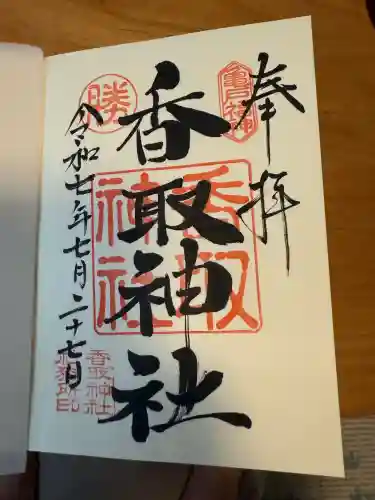 奉拝
亀戸の神
香取神社
香取神社
勝
令和七年七月二十七日
香取神社
社務所印